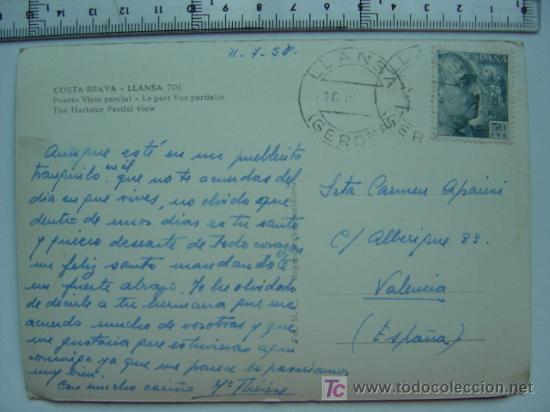 11.7.58.
COSTA BRAVA - LLANSA 705
Puerto Vista parcial - Le port Vue partielle
The Harbour Partiel view
LLANSA
(GERONA)
ESPAÑA
50 CTS
Aunque esté en un pueblecito
tranquilo en el que no te acuerdas del
día en que vives, no olvido que
dentro de unos días es tu santo
y quiero desearte de todo corazón
un feliz santo mandandote
un fuerte abrazo. No he olvidado
de decirle a tu hermana que me
acuerdo mucho de vosotras y que
me gustaria que estuvieras aqui
conmigo ya que me parece lo pasariamos
muy bien.
Con mucho cariño Mª
Srta Carmen Aparisi
C/ Alberique 33.
Valencia
(España)
TC
www.todocoleccion.net